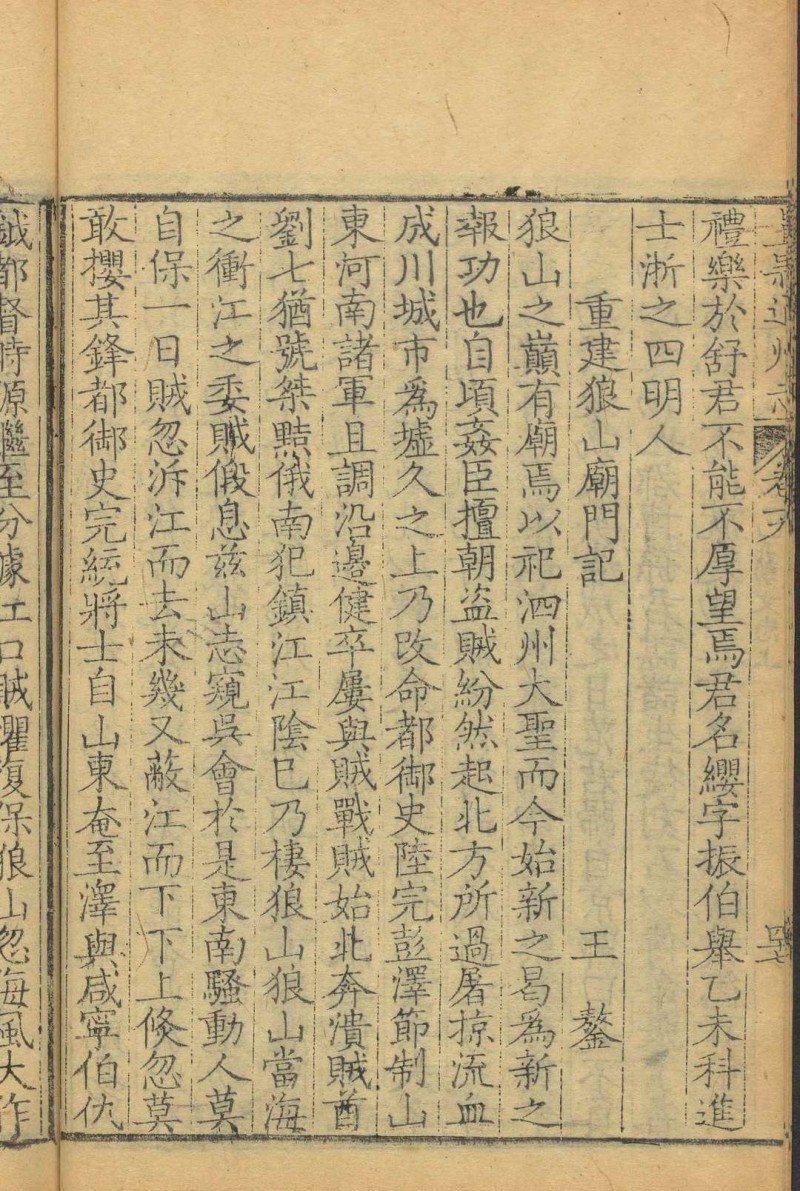 通州志 卷六
禮樂於舒君不能不厚望焉君名纓字振伯舉乙未科進
士浙之四明人
重建狼山廟門記 王鏊
狼山之巔有廟焉以祀泗州大聖而今始新之曷爲新之
報功也自頃姦臣擅朝盜賊紛然起北方所過屠掠流血
成川城市爲墟久之上乃改命都御史陸完彭澤節制山
東河南諸軍且調沿邊健卒屢與賊戰賊始北奔潰賊酋
劉七猶號桀黠俄南犯鎮江江陰已乃棲狼山狼山當海
之衝江之委賊假息兹山志窺吳會於是東南騷動人莫
自保一日賊忽泝江而去未幾又蔽江而下下上倏忽莫
敢攖其鋒都御史完統將士自山東奄至澤與咸寧伯仇
鉞都督時源繼至分據江口賊懼復保狼山忽海風大作